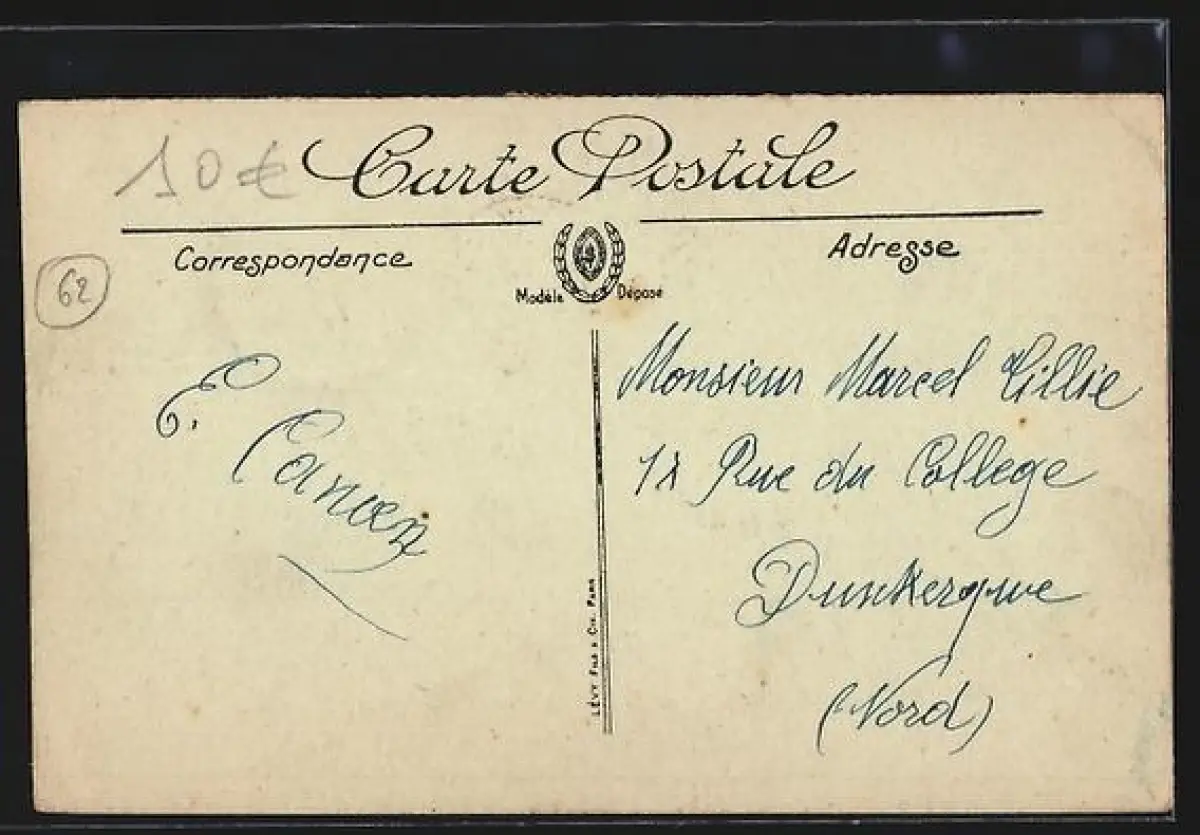 10€
Carte Postale
Correspondance
Adresse
Modèle Déposé
62
Monsieur Marcel
Rue du College
Dunkerque
(Nord)
E.
LÉVY FILS & CIE. PARIS